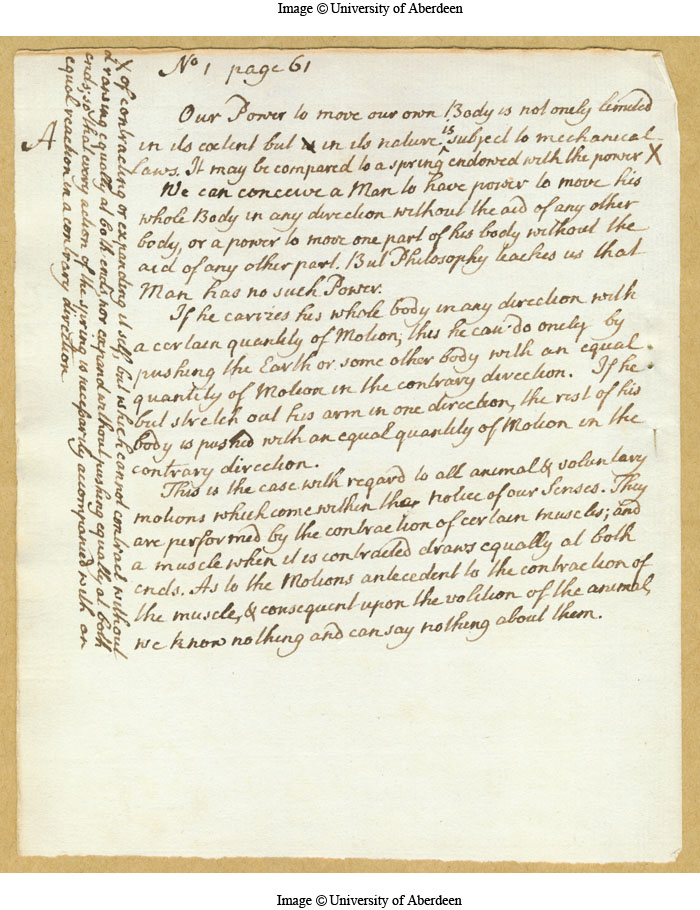 Image © University of Aberdeen
No 1 page 61
Our Power to move our own Body is not onely limited
A
in its extent but in its nature is subject to mechanical
laws. It may be compared to a spring endowed with the power X
We can conceive a Man to have power to move his
whole Body in any direction without the aid of any other
body, or a power to move one part of his body without the
aid of any other part. But Philosophy teaches us that
Man has no such Power.
If he carries his whole body in any direction with
a certain quantity of Motion; this he can do onely by
pushing the Earth or some other body with an equal
quantity of Motion in the contrary direction. If he
but stretch out his arm in one direction, the rest of his
body is pushd with an equal quantity of Motion in the
contrary direction.
This is the case with regard to all animal & voluntary
motions which come within the notice of our Senses. They
are performed by the contraction of certain muscles; and
a muscle when it is contracted draws equally at both
ends. As to the Motions antecedent to the contraction of
the muscle, & consequent upon the volition of the animal,
we know nothing and can say nothing about them.
X of contracting or expanding it self, but which cannot contract without
drawing equally at both ends, nor expand without pushing equally at both
ends; so that every action of the spring is necessarly accompanied with an
equal reaction in a contrary direction
Image © University of Aberdeen